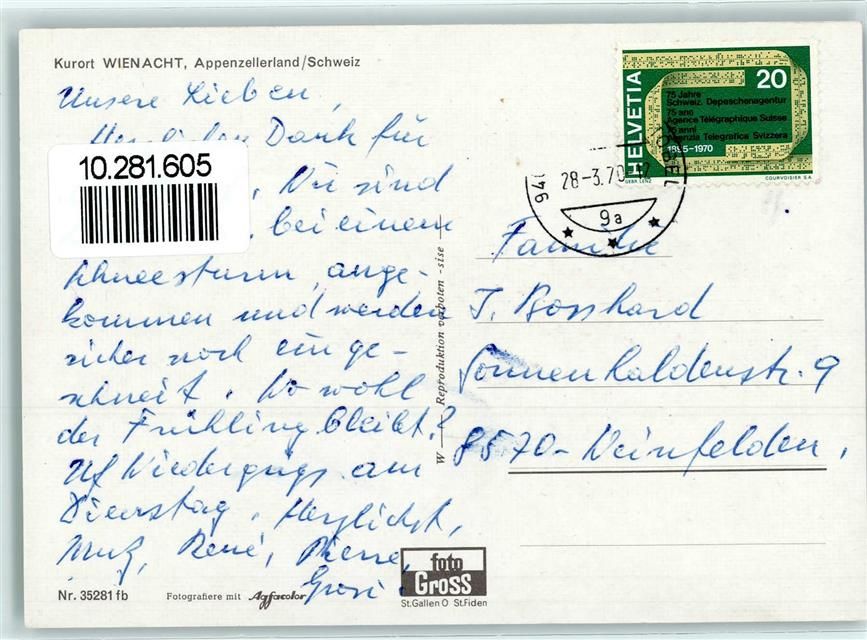 Kurort WIENACHT, Appenzellerland/Schweiz
Unsere Lieben,
Herzlichen Dank für
10.281.605
Wir sind
bei einem
Schneesturm ange-
kommen und werden
sicher noch einge-
schneit. Wo wohl
der Frühling bleibt?
Uf Wiederguge am
Dienstag. Herzlichst,
René, Pierre,
Grosi.
Nr. 35281 fb
Fotografiere mit Agfacolor
foto
GROSS
St.Gallen O St.Fiden
W — Reproduktion verboten -sise —
HELVETIA
20
75 Jahre
Schweiz. Depeschenagentur
75 ans
Agence Télégraphique Suisse
75 anni
Agenzia Telegrafica Svizzera
1895-1970
GEBR. LENZ
COURVOISIER S.A.
28-3.70
9a
Familie
J. Bosshard
Sonnenhaldenstr. 9
8570-Weinfelden,